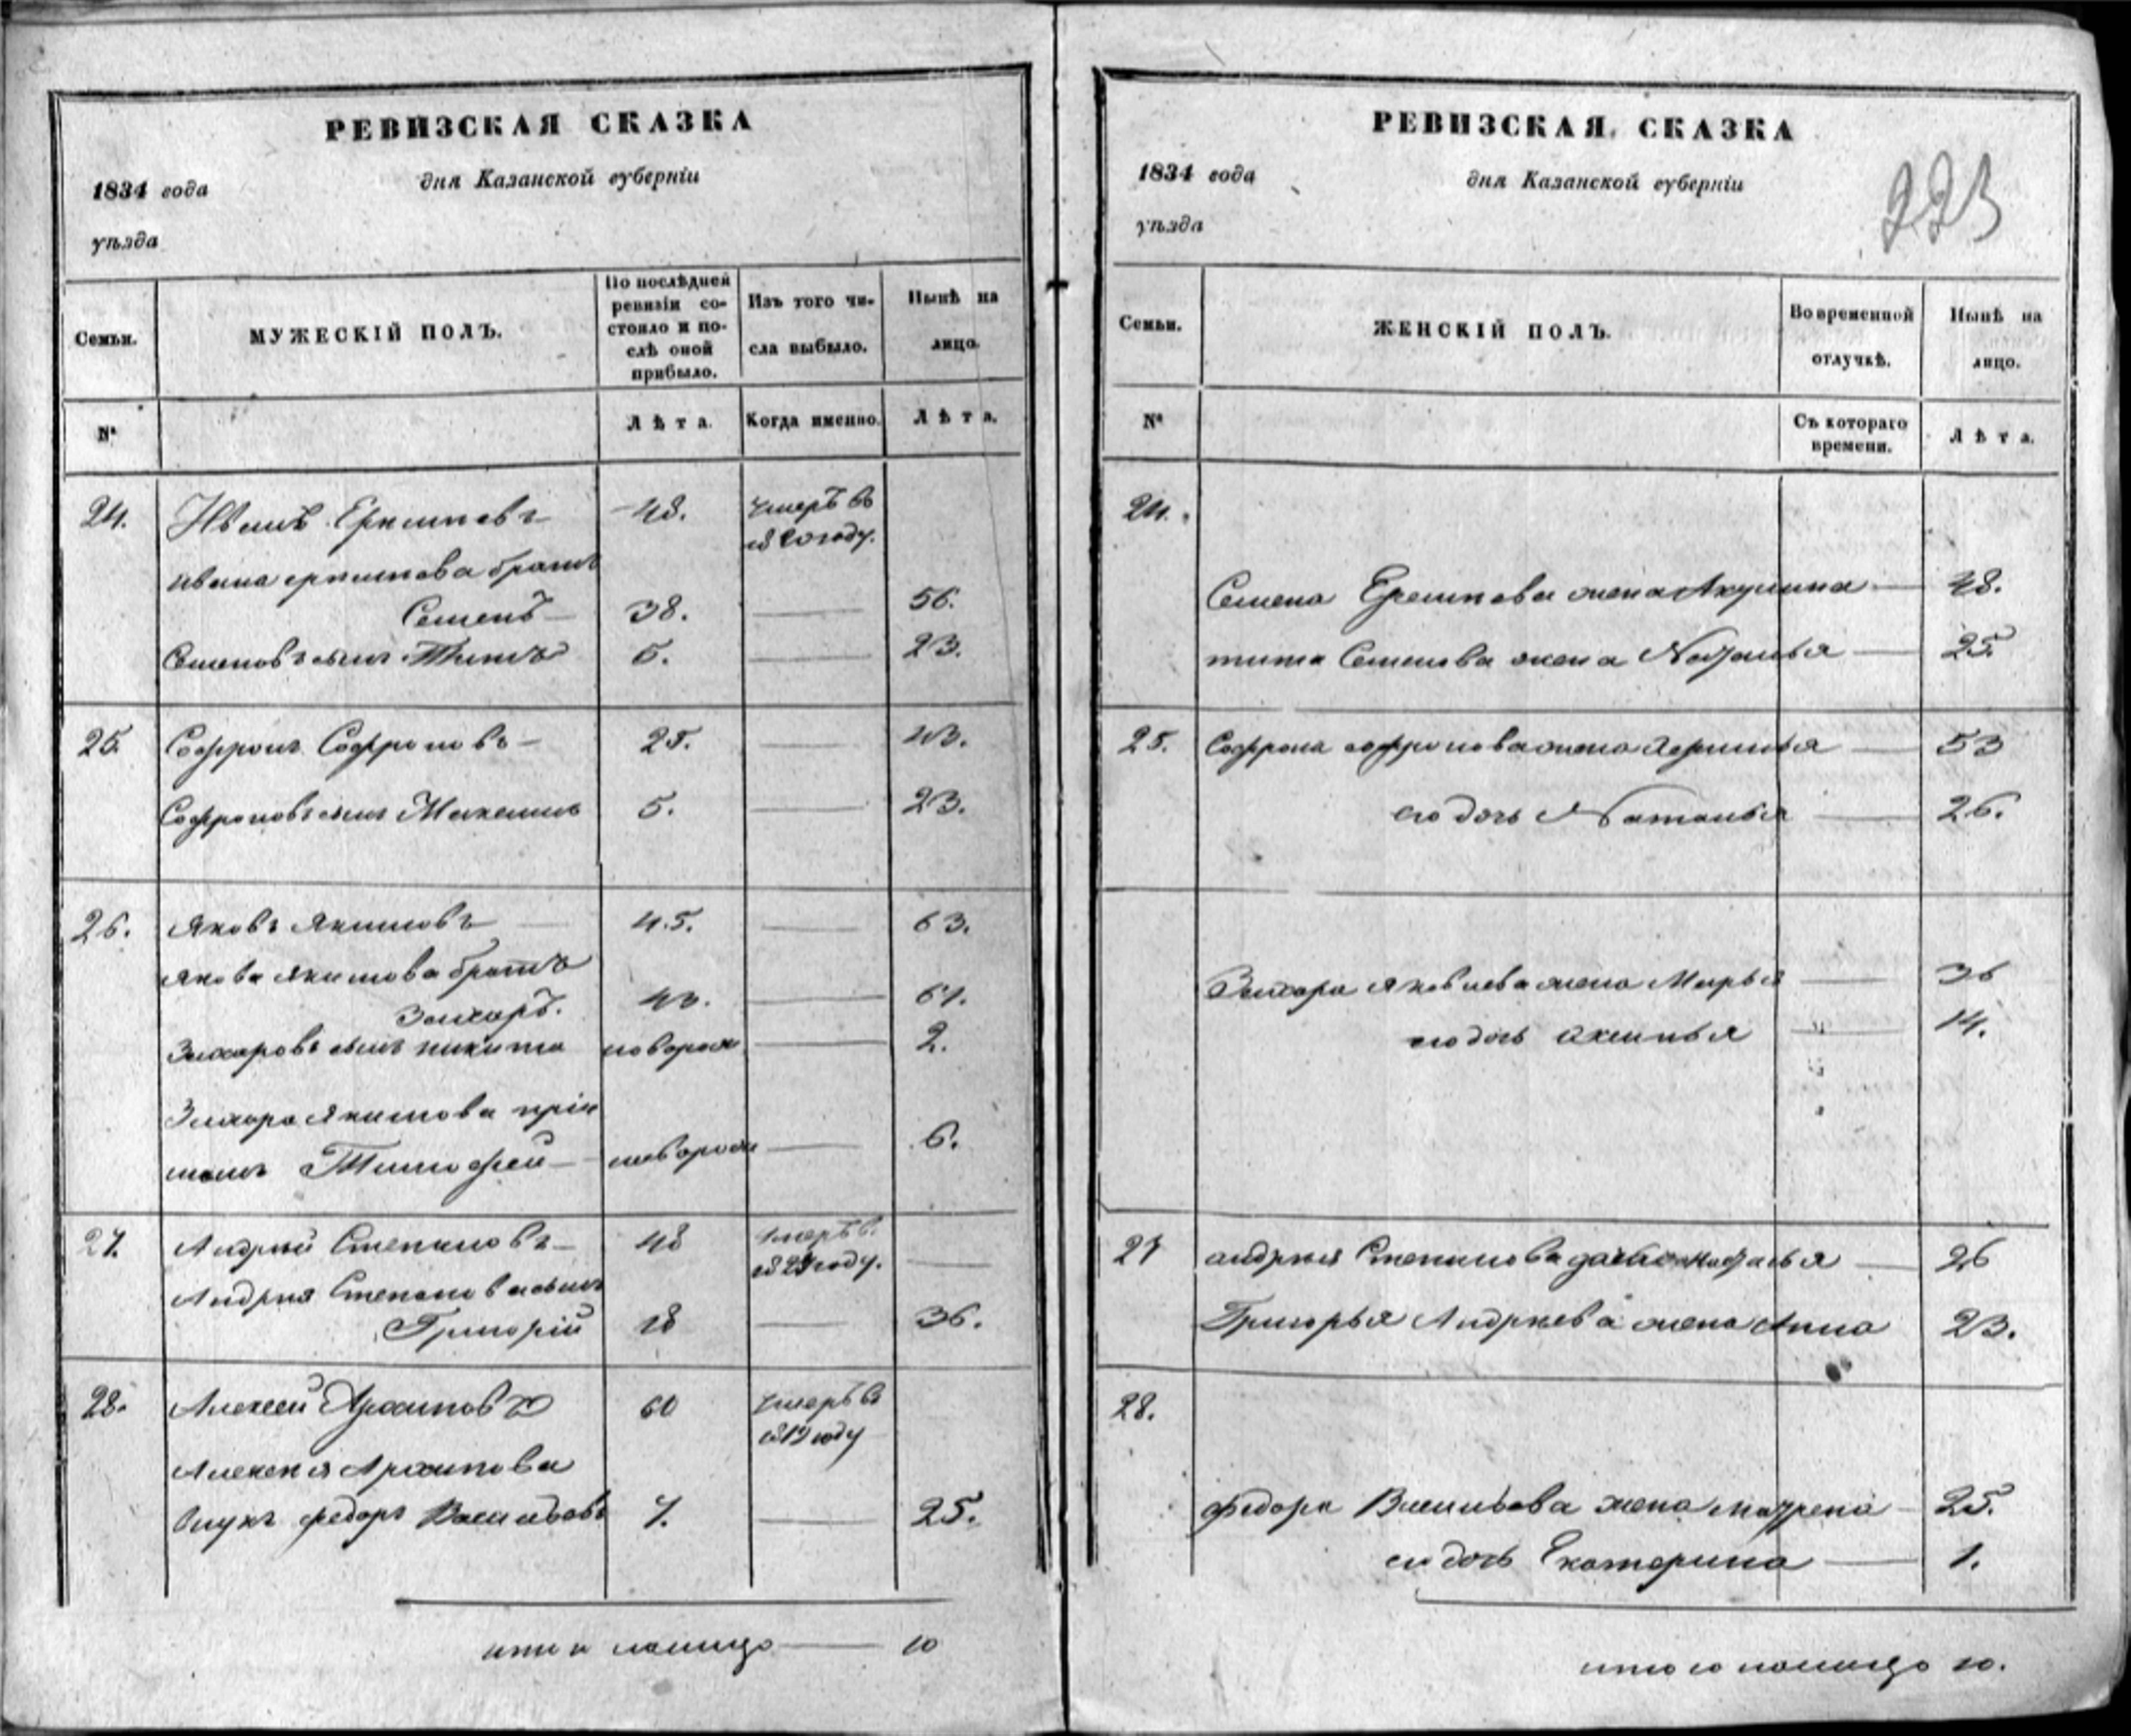 РЕВИЗСКАЯ СКАЗКА
1834 года
дня Казанской губерніи
уѣзда
Семьи.
МУЖЕСКІЙ ПОЛЪ.
По послѣдней ревизіи со-
стояло и по-
слѣ оной
прибыло.
Изъ того чи-
сла выбыло.
Нынѣ на
лицо.
№
Лѣта.
Когда именно.
Лѣта.
24. Иванъ 48. умеръ въ
1820 году.
Ивана братъ
Семенъ 38. 56.
Семеновъ сынъ Титъ 5. 23.
25. Софронъ Софроновъ 25. 43.
Софроновъ сынъ 5. 23.
26. Яковъ Якимовъ 45. 63.
Якова Якимова братъ
Захаръ. 43. 61.
Захаровъ сынъ никита новорож 2.
Захара Якимова пріи
мышъ Тимофей новорож 6.
27. Андрей Степановъ 48 умеръ в.
году.
Андрея Степанова сынъ
Григорій 18 36.
28. Алексей Архиповъ 60 умеръ въ
году
Алексея Архипова
внукъ федоръ Васильевъ 7. 25.
итого налицо 10
РЕВИЗСКАЯ СКАЗКА
223
1834 года
дня Казанской губерніи
уѣзда
Семьи.
ЖЕНСКІЙ ПОЛЪ.
Во временной
отлучкѣ.
Нынѣ на
лицо.
№
Съ котораго
времени.
Лѣта.
24.
Семена жена Акулина 48.
тита Семенова жена 25.
25. Софрона софронова жена 53
его дочь Наталья 26.
Захара жена Марья 36
его дочь аксинья 14.
27 андрея Степанова 26
Григорья Андреева жена Анна 23.
28.
федора Васильева жена матрена 25.
его дочь Екатерина 1.
итого налицо 10.